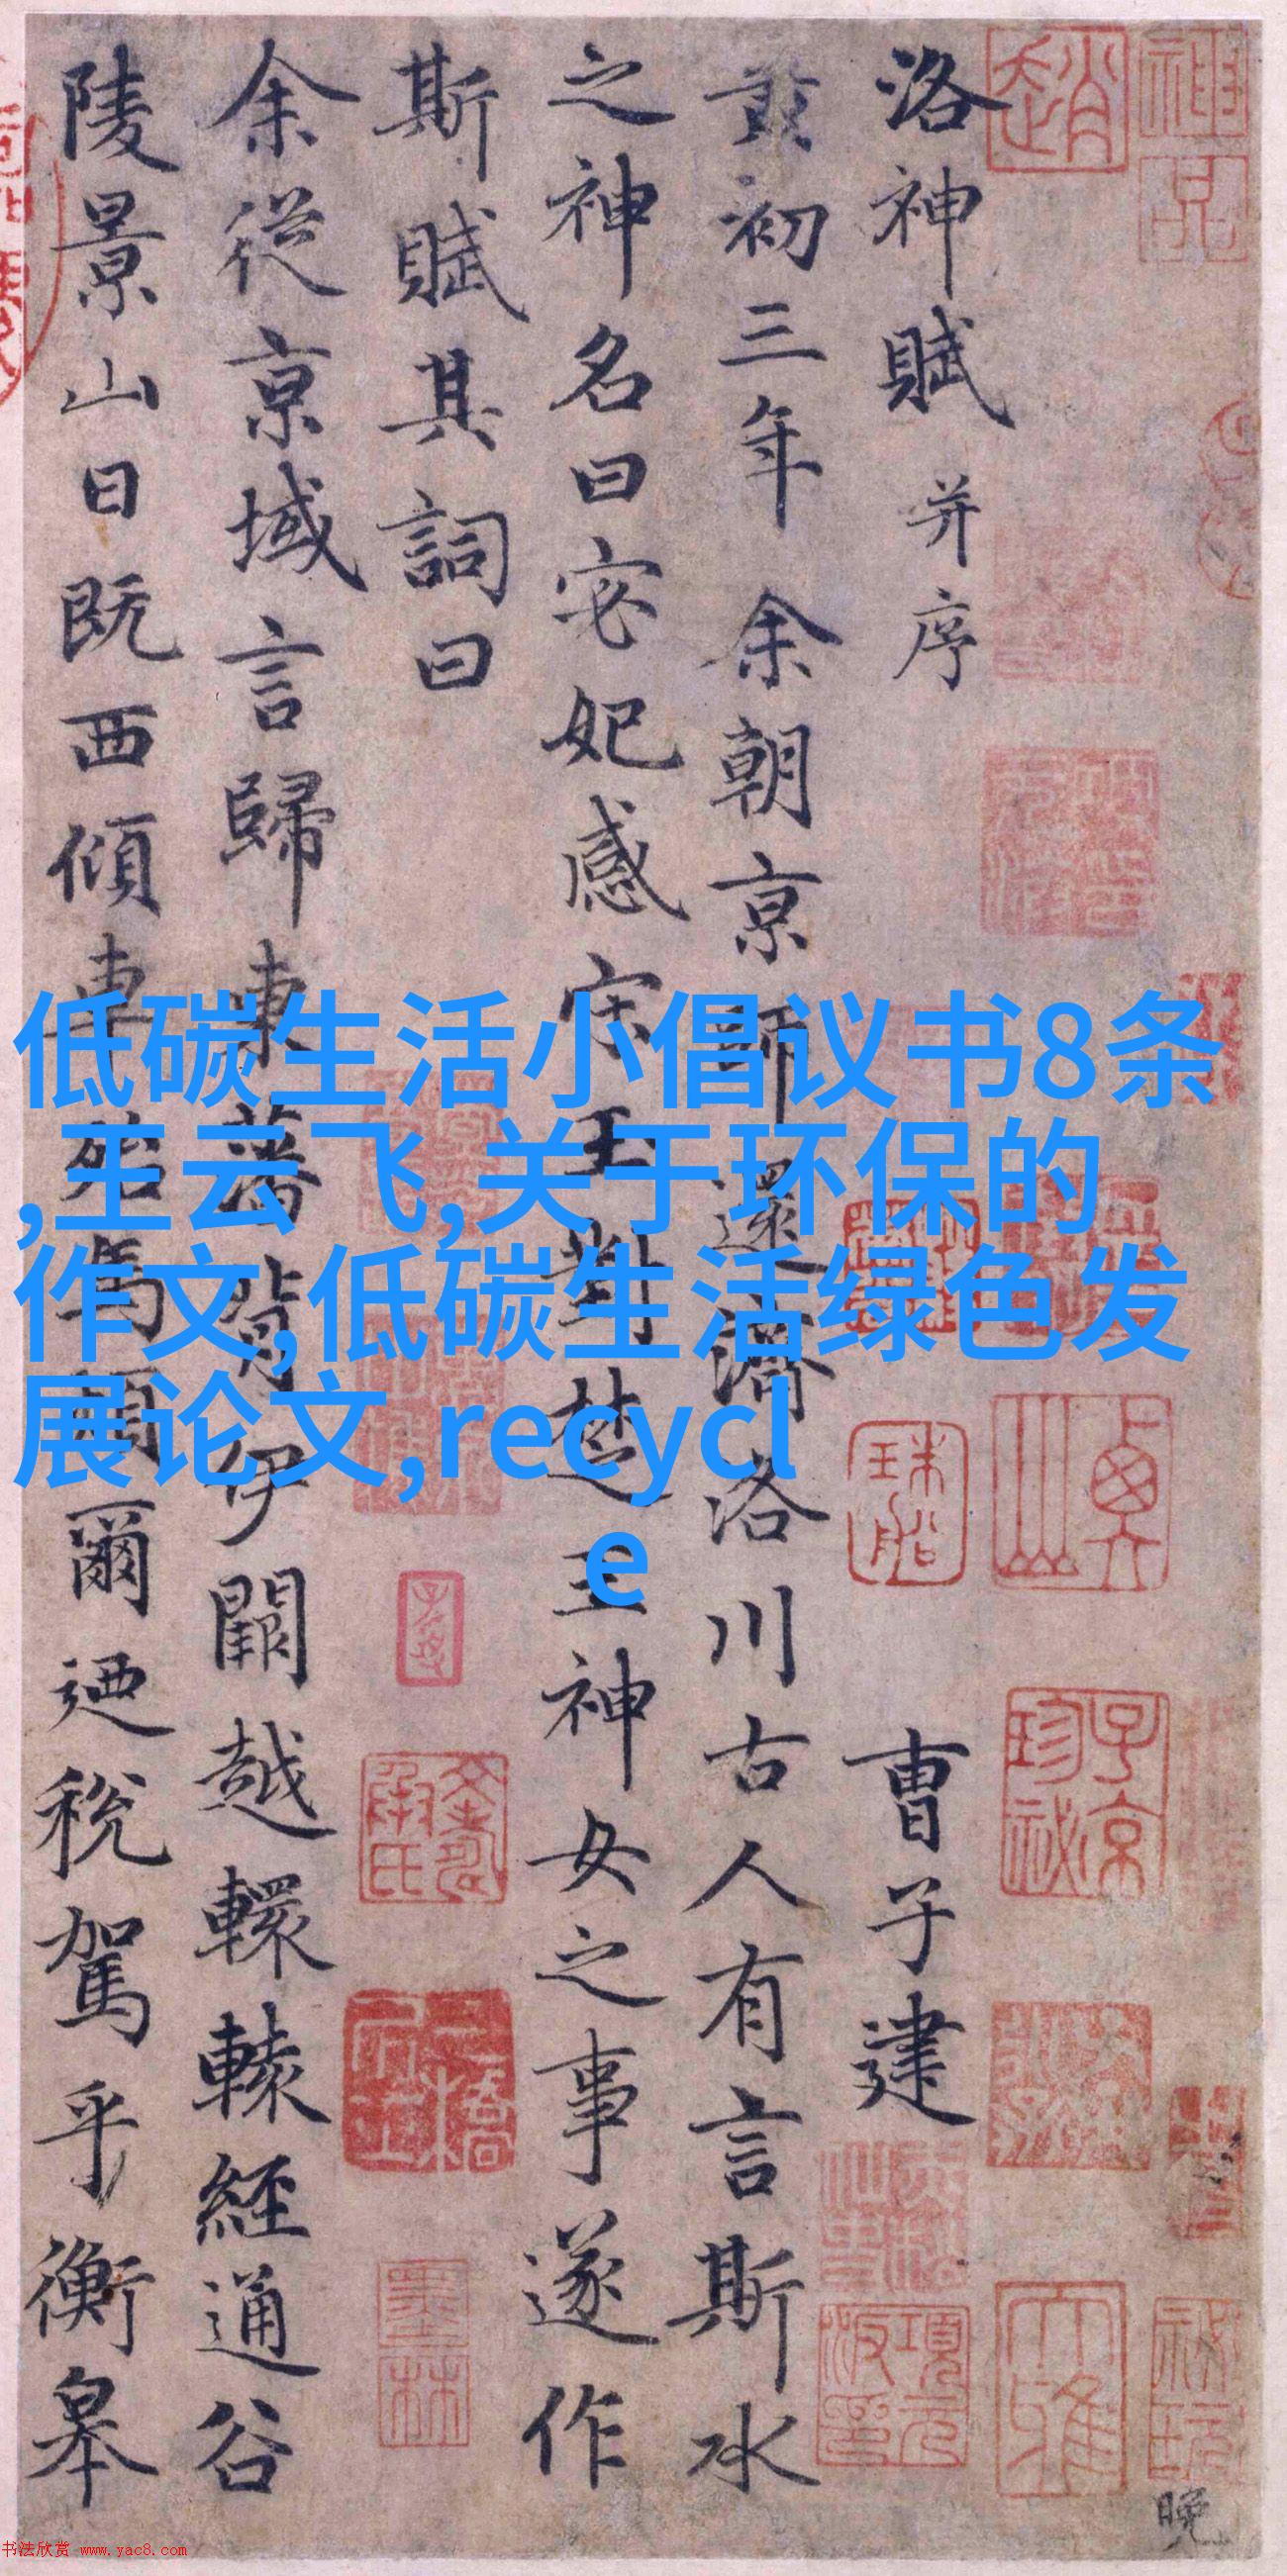 洛神賦 并序 曹子建
黃初三年余朝京師還濟洛川古人有言斯水
之神名曰宓妃感宋玉對楚王神女之事遂作
斯賦其詞曰
余從京域言歸東藩背伊闕越轘轅經通谷
陵景山日既西傾車殆馬煩爾迺稅駕乎衡皋
低碳生活小倡议书8条
,王云飞,关于环保的
作文,低碳生活绿色发
展论文,recycl
e
趙
神品
子京珍祕
大雅
墨林
晚
书法欣赏 www.yac8.com